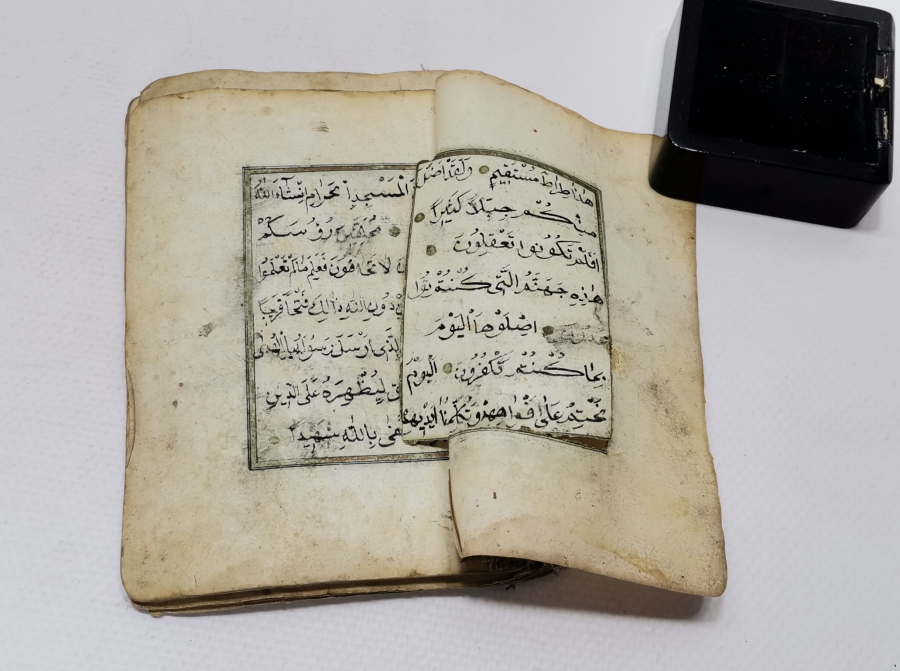 هٰذَا صِرَاطٌ مُسْتَقِيمٌ وَلَقَدْ اَضَلَّ
مِنْكُمْ جِبِلًّا كَثِيرًا
اَفَلَمْ تَكُونُوا تَعْقِلُونَ
هٰذِهِ جَهَنَّمُ الَّتِي كُنْتُمْ تُو
اِصْلَوْهَا الْيَوْمَ
بِمَا كُنْتُمْ تَكْفُرُونَ الْيَوْمَ
نَخْتِمُ عَلَى اَفْوَاهِهِمْ وَتُكَلِّمُنَا اَيْدِيهِمْ
الْمَسْجِدَ الْحَرَامَ اِنْ شَآءَ اللّٰهُ
مُحَلِّقِينَ رُؤُسَكُمْ
لَا تَخَافُونَ فَعَلِمَ مَا لَمْ تَعْلَمُوا
دُونِ اللّٰهِ ذَالِكَ فَتْحًا قَرِيبًا
الَّذِي اَرْسَلَ رَسُولَهُ بِالْهُدَى
لِيُظْهِرَهُ عَلَى الدِّينِ
كَفَى بِاللّٰهِ شَهِيدًا